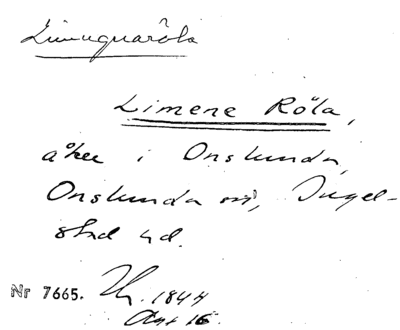 Limugnaröla
Limene Röla,
åker i Onslunda,
Onslunda sn, Ingel-
stad hd.
Nr 7665. Lh. 1844
Akt 16